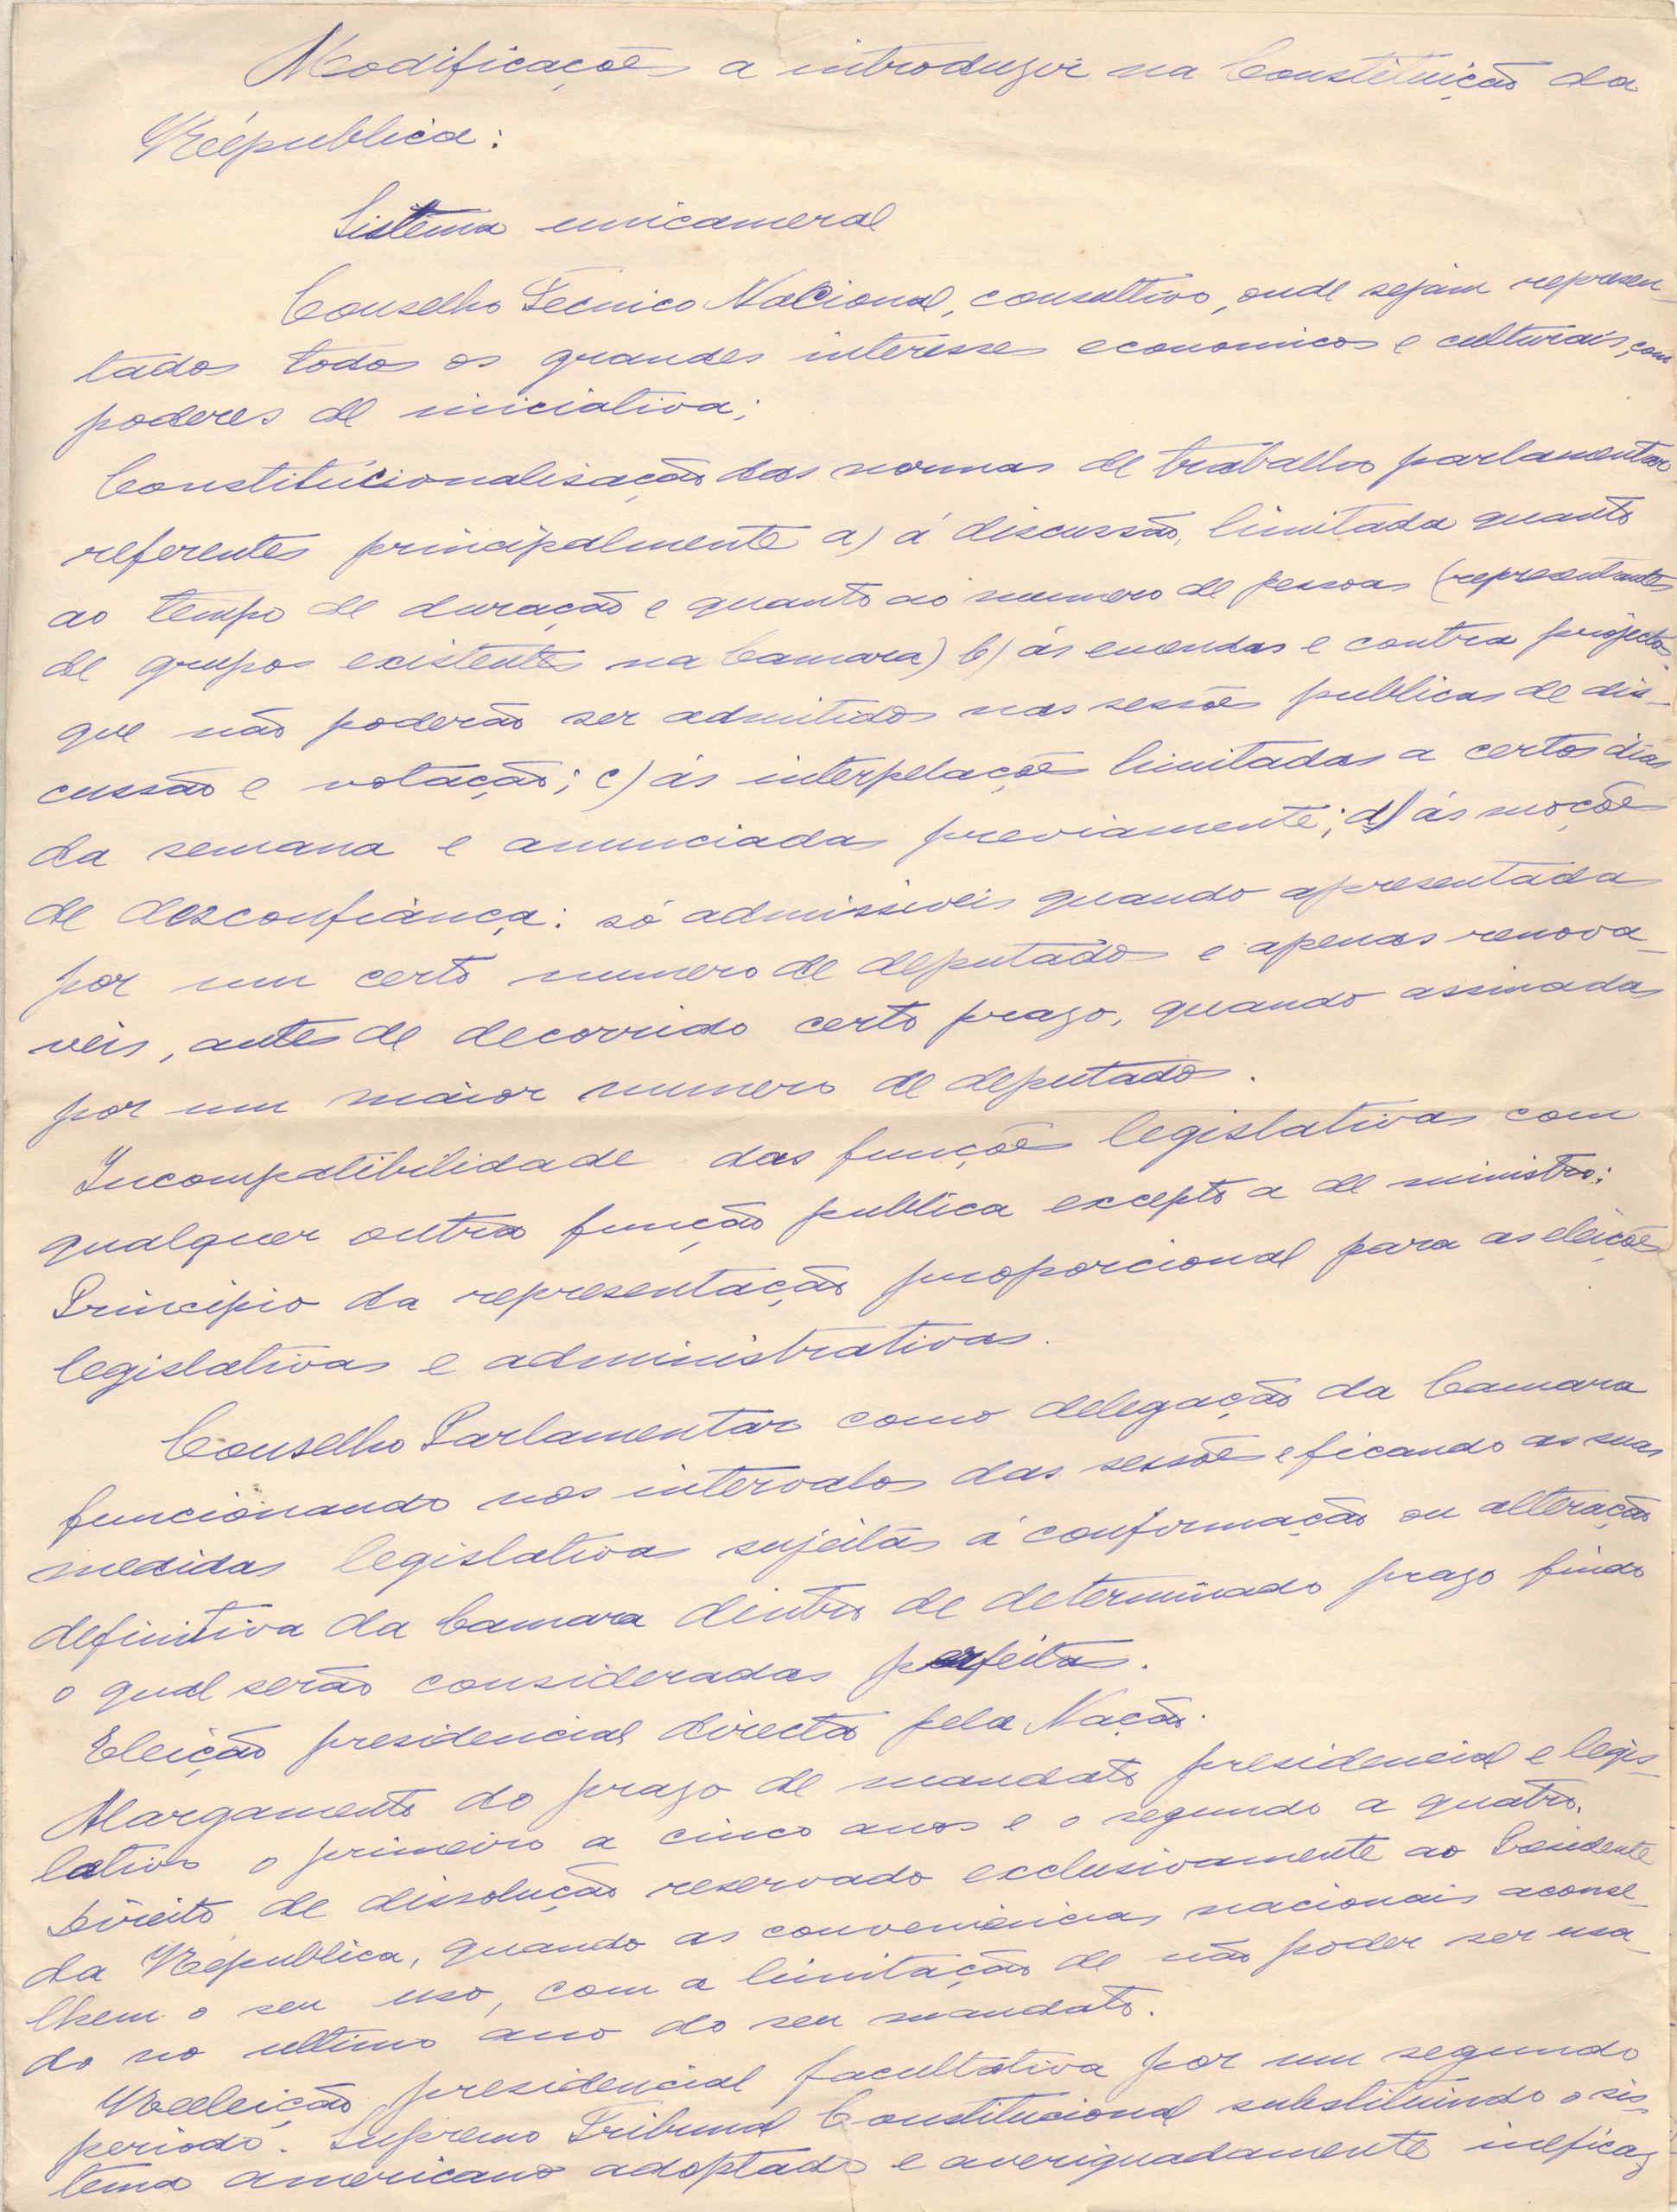 Modificações a introduzir na Constituição da
Républica:
Sistema unicameral
Conselho Tecnico Nacional, consultivo, onde sejam represen-
tados todos os grandes interesses economicos e culturais, com
poderes de iniciativa;
Constitucionalisação das normas de trabalho parlamentar
referentes principalmente a) á discussão, limitada quanto
ao tempo de duração e quanto ao numero de pessoas (representantes
de grupos existentes na Camara) b) ás emendas e contra projectos
que não poderão ser admitidos nas sessões publicas de dis-
cussão e votação; c) ás interpelações limitadas a certos dias
da semana e anunciadas previamente; d) ás moções
de desconfiança: só admissiveis quando apresentadas
por um certo numero de deputados e apenas renova-
veis, antes de decorrido certo prazo, quando assinadas
por um maior numero de deputados.
Incompatibilidade das funções legislativas com
qualquer outra função publica excepto a de ministro;
Principio da representação proporcional para as eleições
legislativas e administrativas.
Conselho Parlamentar como delegação da Camara
funcionando nos intervalos das sessões e ficando as suas
medidas legislativas sujeitas á confirmação ou alteração
definitiva da Camara dentro de determinado prazo findo
o qual serão consideradas perfeitas.
Eleição presidencial directa pela Nação.
Alargamento do prazo de mandato presidencial e legis-
lativo o primeiro a cinco anos e o segundo a quatro.
Direito de dissolução reservado exclusivamente ao Presidente
da Républica, quando as conveniencias nacionais aconse-
lhem o seu uso, com a limitação de não poder ser usa-
do no ultimo ano do seu mandato.
Reeleição presidencial facultativa por um segundo
periodo. Supremo Tribunal Constitucional substituindo o sis-
tema americano adoptado e averiguadamente ineficaz